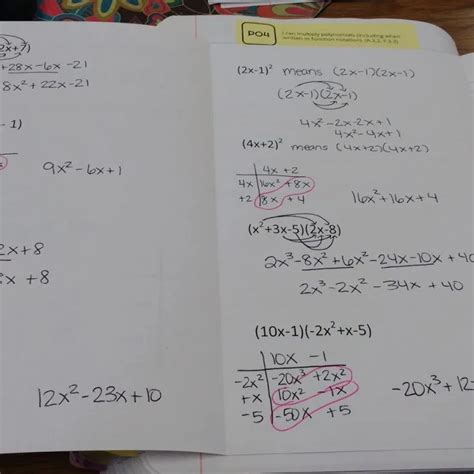 2x+7)
+28x-6x-21
8x²+22x-21
- 1)
9x²-6x+1
2x+8
x+8
12x²-23x+10
PO4
I can multiply polynomials (including when
written in function notation).
(2x-1)² means (2x-1)(2x-1)
(2x-1)(2x-1)
4x²-2x-2x+1
4x²-4x+1
(4x+2)² means (4x+2)(4x+2)
4x +2
4x 16x² +8x
+2 8x +4
16x²+16x+4
(x²+3x-5)(2x-8)
2x³-8x²+6x²-24x-10x+40
2x³-2x²-34x+40
(10x-1)(-2x²+x-5)
10x -1
-2x² -20x³ +2x²
+x 10x² -1x
-5 -50x +5
-20x³+12